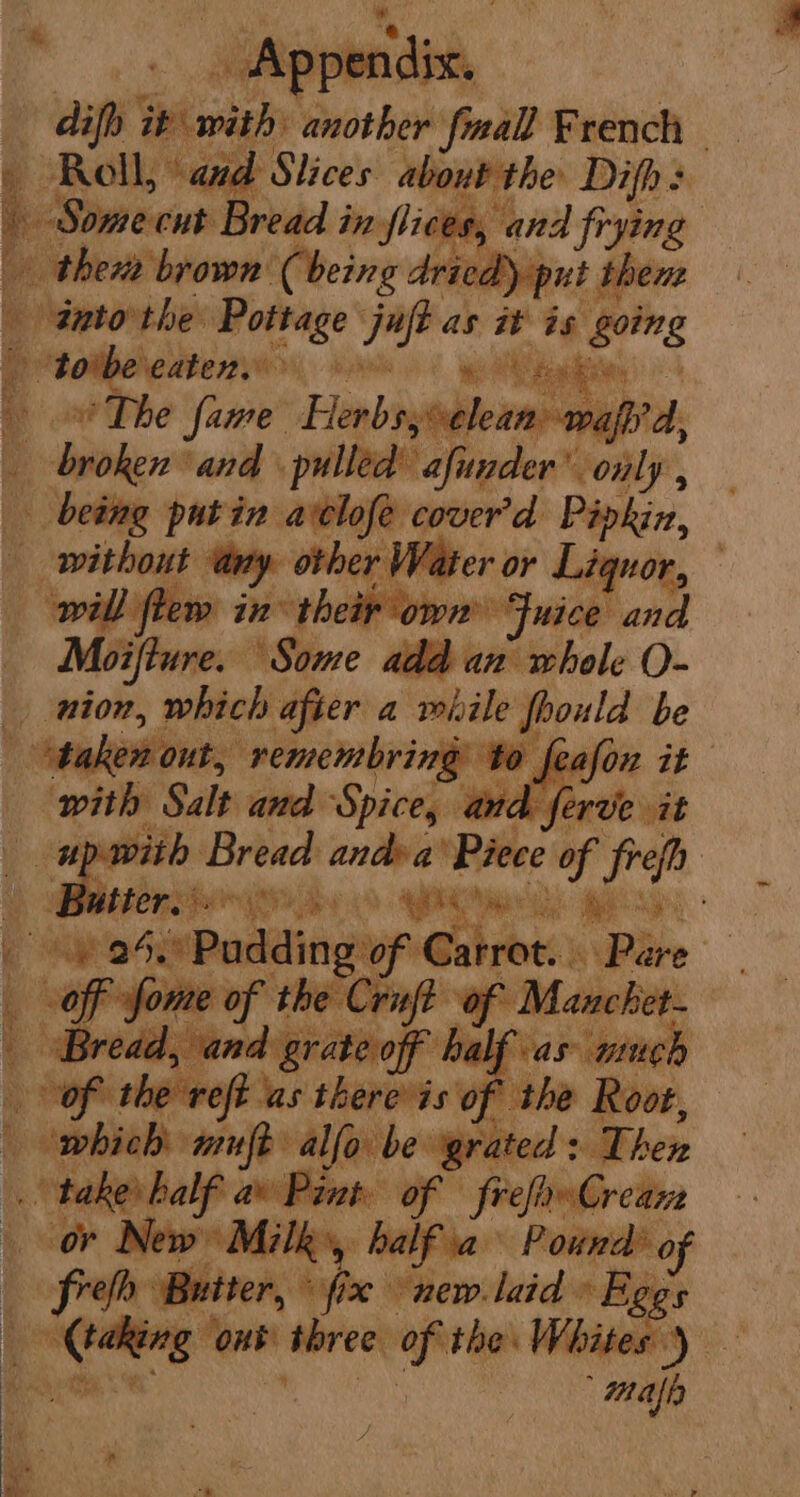 Appendix.
diſh it with another ſmall French
Roll, and Slices about the Diſh:
Some cut Bread in ſlices, and frying
them brown (being dried) put them
into the Pottage juſt as it is going
to be eaten.
The ſame Herbs, clean waſh'd,
broken and pulled aſunder only,
being put in a cloſe cover'd Pipkin,
without any other Water or Liquor,
will ſtew in their own Juice and
Moiſture. Some add an whole O-
nion, which after a while ſhould be
taken out, remembring to ſeaſon it
with Salt and Spice, and ſerve it
up with Bread and a Piece of freſh
Butter.
25. Pudding of Carrot. Pare
off ſome of the Cruſt of Manchet-
Bread, and grate off half as much
of the reſt as there is of the Root,
which muſt alſo be grated: Then
take half a Pint of freſh Cream
or New Milk, half a Pound of
freſh Butter, ſix new laid Eggs
(taking out three of the Whites)
maſh